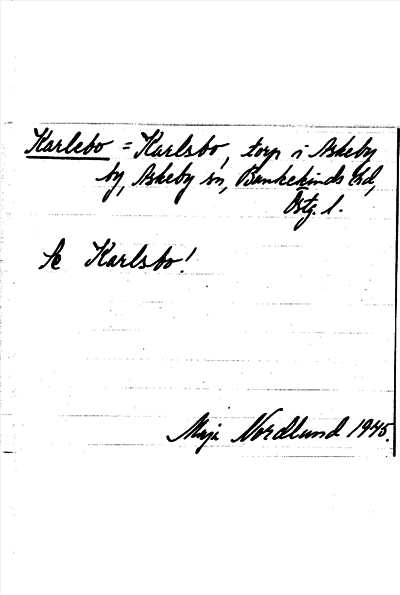 Karlebo = Karlsbo, torp i Askeby
by, Askeby sn, Bankekinds hd,
Östg. l.
Se Karlsbo!
Maja Nordlund 1945.